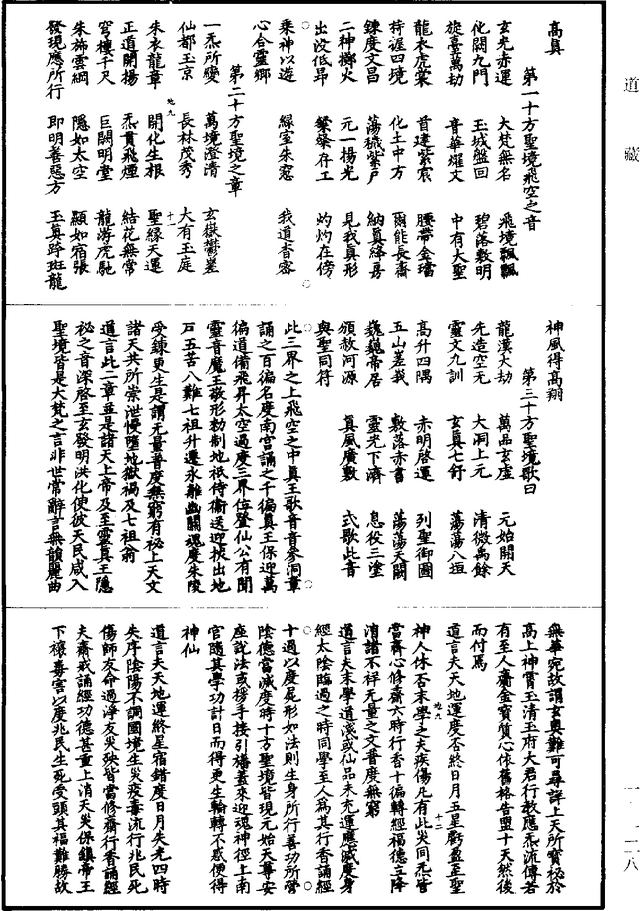 道藏
高真
第一十方聖境飛空之音
玄光赤運　大梵無名　飛境飄飄
化闢九門　玉城盤回　碧落敷明
旋臺萬劫　音華燿文　中有大聖
龍衣虎裳　首建紫宸　腰帶金璫
持握四境　化土中方　爾能長齋
鍊度文昌　蕩穢紫戶　納真絳房
二神擲火　元一揚光　見我真形
出沒低昂　粲粲存工　灼灼在傍
乘神以遊　綠室朱窓　我道杳容
心合靈鄉
第二十方聖境之章
一炁所變　萬境澄清　玄嶽鬱差
仙都玉京　長林茂秀　大有玉庭
朱衣龍章　開化生根　聖緣天運
正道開揚　炁貫飛煙　結花無常
穹樓千尺　巨闢明堂　龍游虎馳
朱旆雲綱　隱如太空　顯如宿張
發現應所行　即明善惡方　玉真跨斑龍
神風得高翔
第三十方聖境歌曰
龍漢大劫　萬品玄虛　元始開天
先造空无　大洞上元　清微禹餘
靈文九訓　玄真七釘　蕩蕩八垣
高升四隅　赤明啓運　列聖御圖
五山嵳峩　敷落赤書　蕩蕩天闕
巍巍帝居　靈光下濟　息役三塗
頒赦河源　真風廣敷　式歌此音
與聖同符
此三界之上飛空之中真王歌音音參洞章
誦之百徧名度南宮誦之千徧真王保迎萬
徧道備飛昇太空過度三界位登仙公有聞
靈音魔王敬形勑制地祇侍衞送迎拔出地
戶五苦八難七祖升遷永離幽關魂度朱陵
受鍊更生是謂无量普度無窮有祕上天文
諸天共所崇泄慢墮地獄禍及七祖翁
道言此二章並是諸天上帝及至靈真王隱
祕之音深啓至玄發明洪化使彼天民咸入
聖境皆是大梵之言非世常辭言無韻麗曲
無華宛故謂玄奧難可尋詳上天所寶祕於
高上神霄玉清玉府大君行教應炁流傳若
有至人齎金寶質心依舊格告盟十天然後
而付焉
道言夫天地運度否終日月五星虧盈至聖
神人休否末學之夫疾傷凡有此災同炁皆
當齋心修齋六時行香十徧轉經福德立降
消諸不祥无量之文普度無窮
道言夫末學道淺或仙品未充運應滅度身
經太陰臨過之時同學至人爲其行香誦經
十過以度屍形如法則生身所行善功所營
陰德當滅度時十方聖境皆現元始天尊安
座說法或揆手接引旛蓋來迎魂神徑上南
官隨其學功計日而得更生輪轉不惑便得
神仙
道言夫天地運終星宿錯度日月失光四時
失序陰陽不調國境生災疫毒流行兆民死
傷師友命過淨友災殃皆當修齋行香誦經
夫齋戒誦經功德甚重上消天災保鎮帝王
下禳毒害以度兆民生死受賴其福難勝故
地九　十一
地九　十二
一－一二八